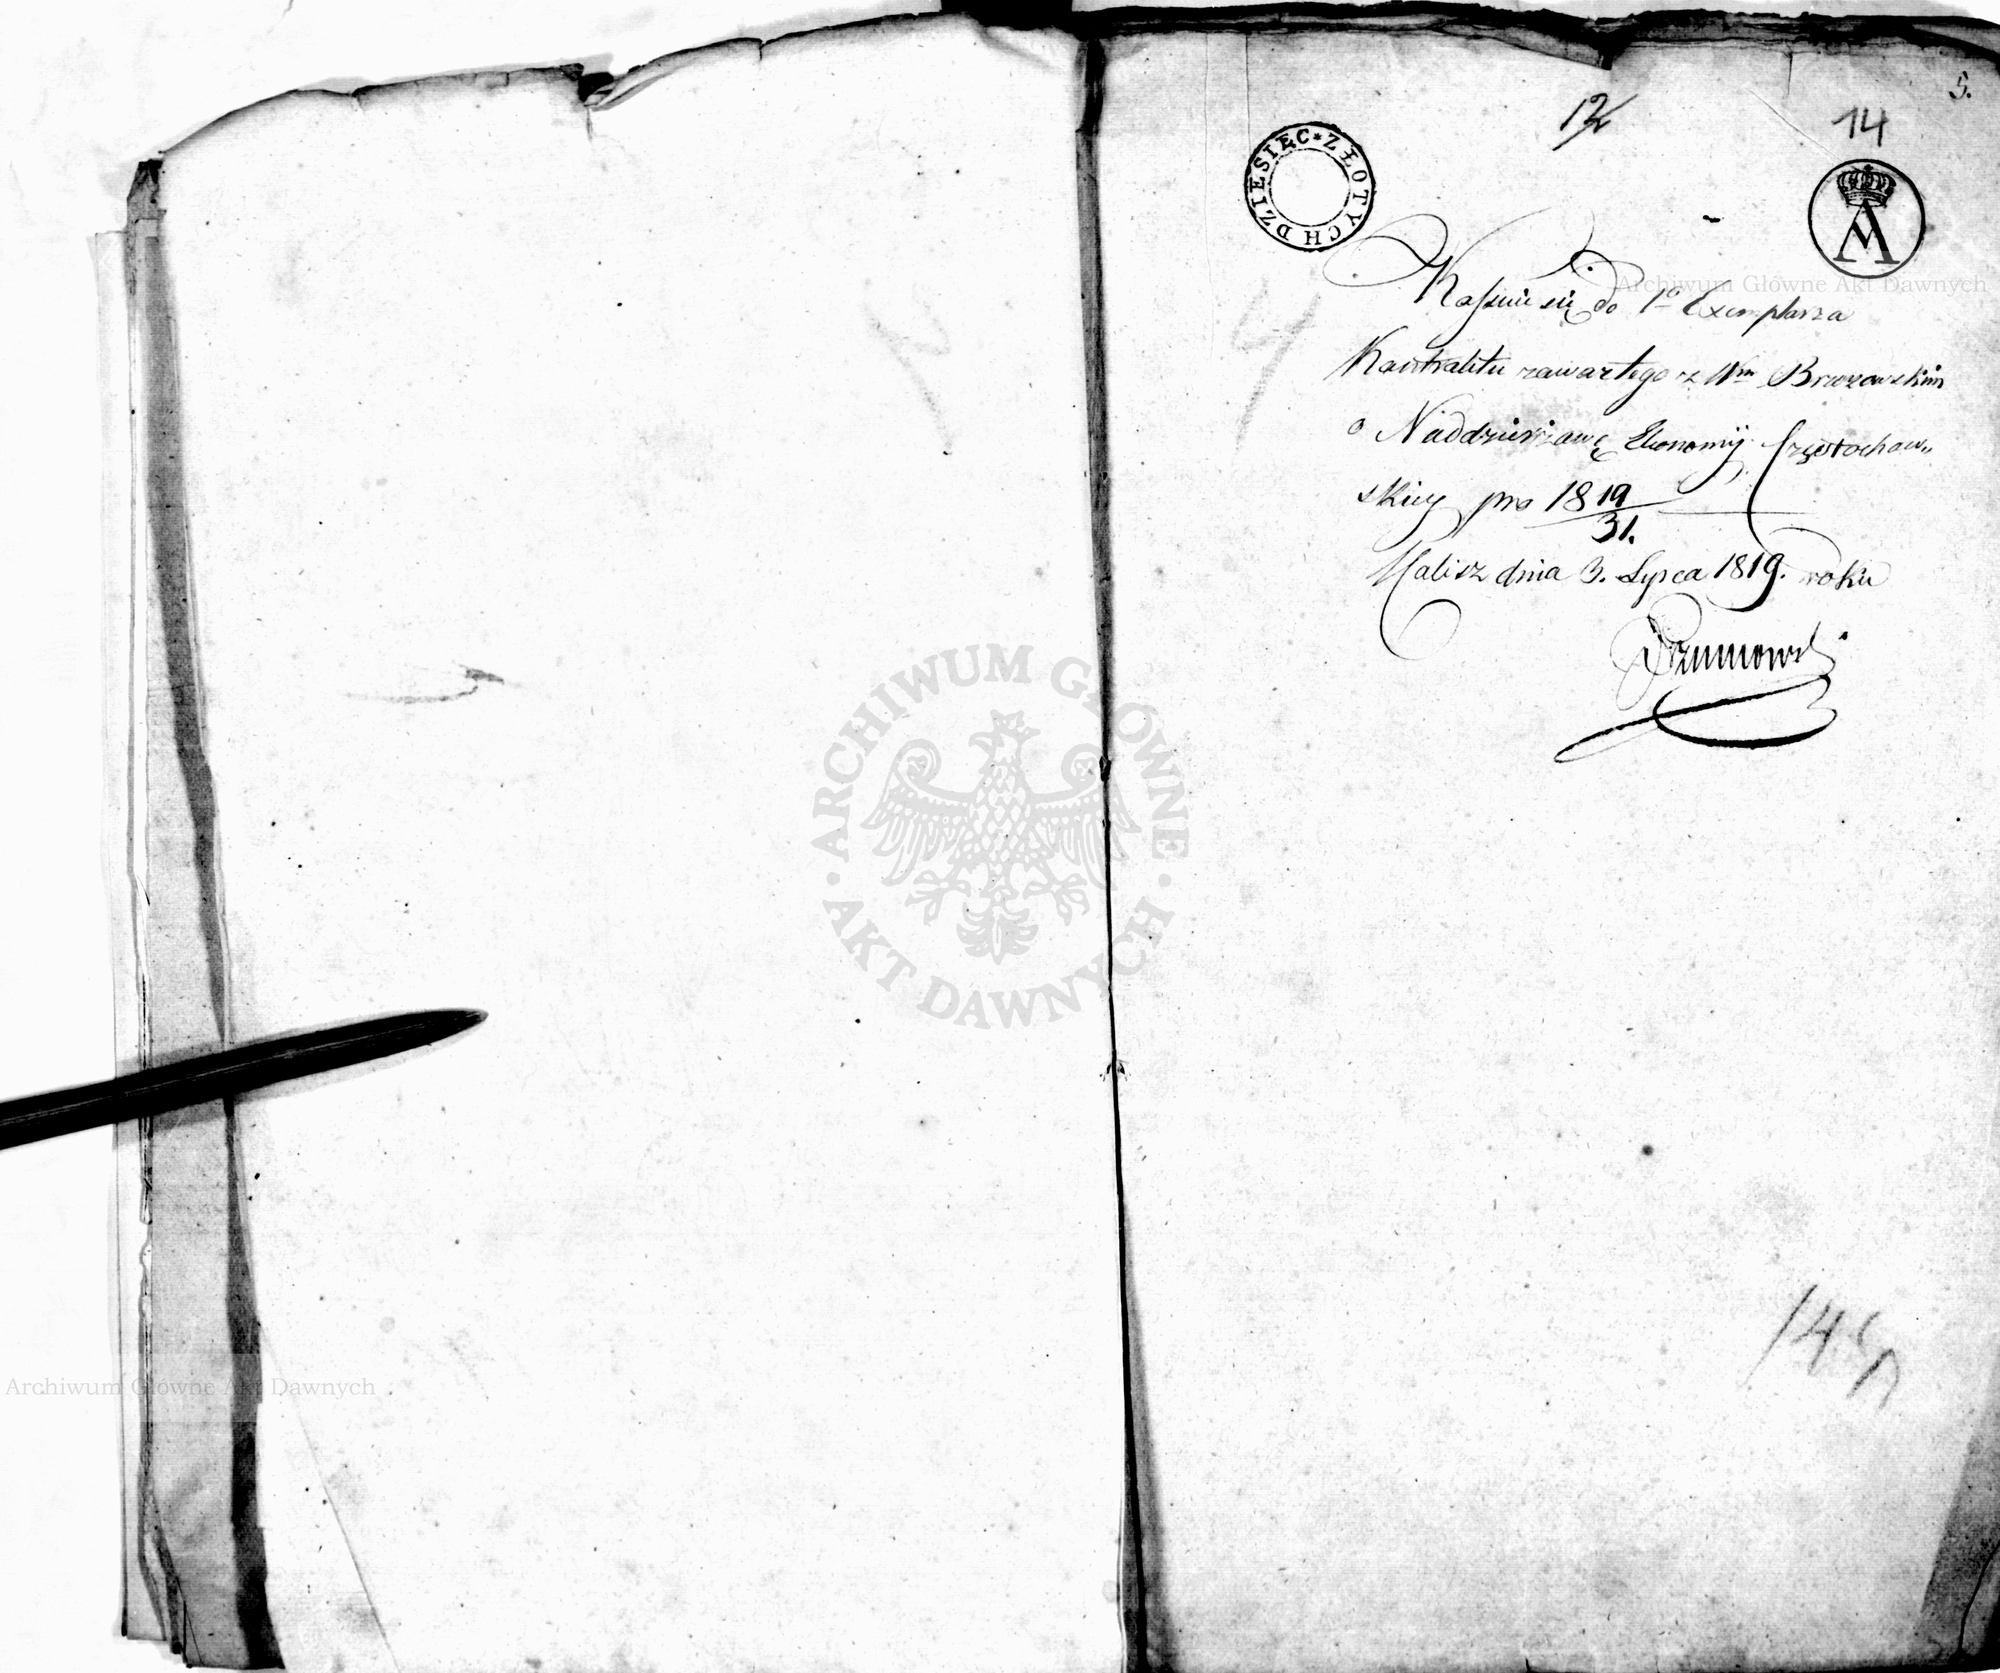 5.
12
14
DZIESIĘC * ZŁOTYCH
A
Kassuie się do 1o Exemplarza
Kontraktu zawartego z Wm Brzozowskim
o Naddzierżawę Ekonomij Częstochow„
skiey pro 1819/31.
Kalisz dnia 3. Lypca 1819. roku
Archiwum Główne Akt Dawnych
ARCHIWUM GŁÓWNE · AKT DAWNYCH ·
14
Archiwum Główne Akt Dawnych